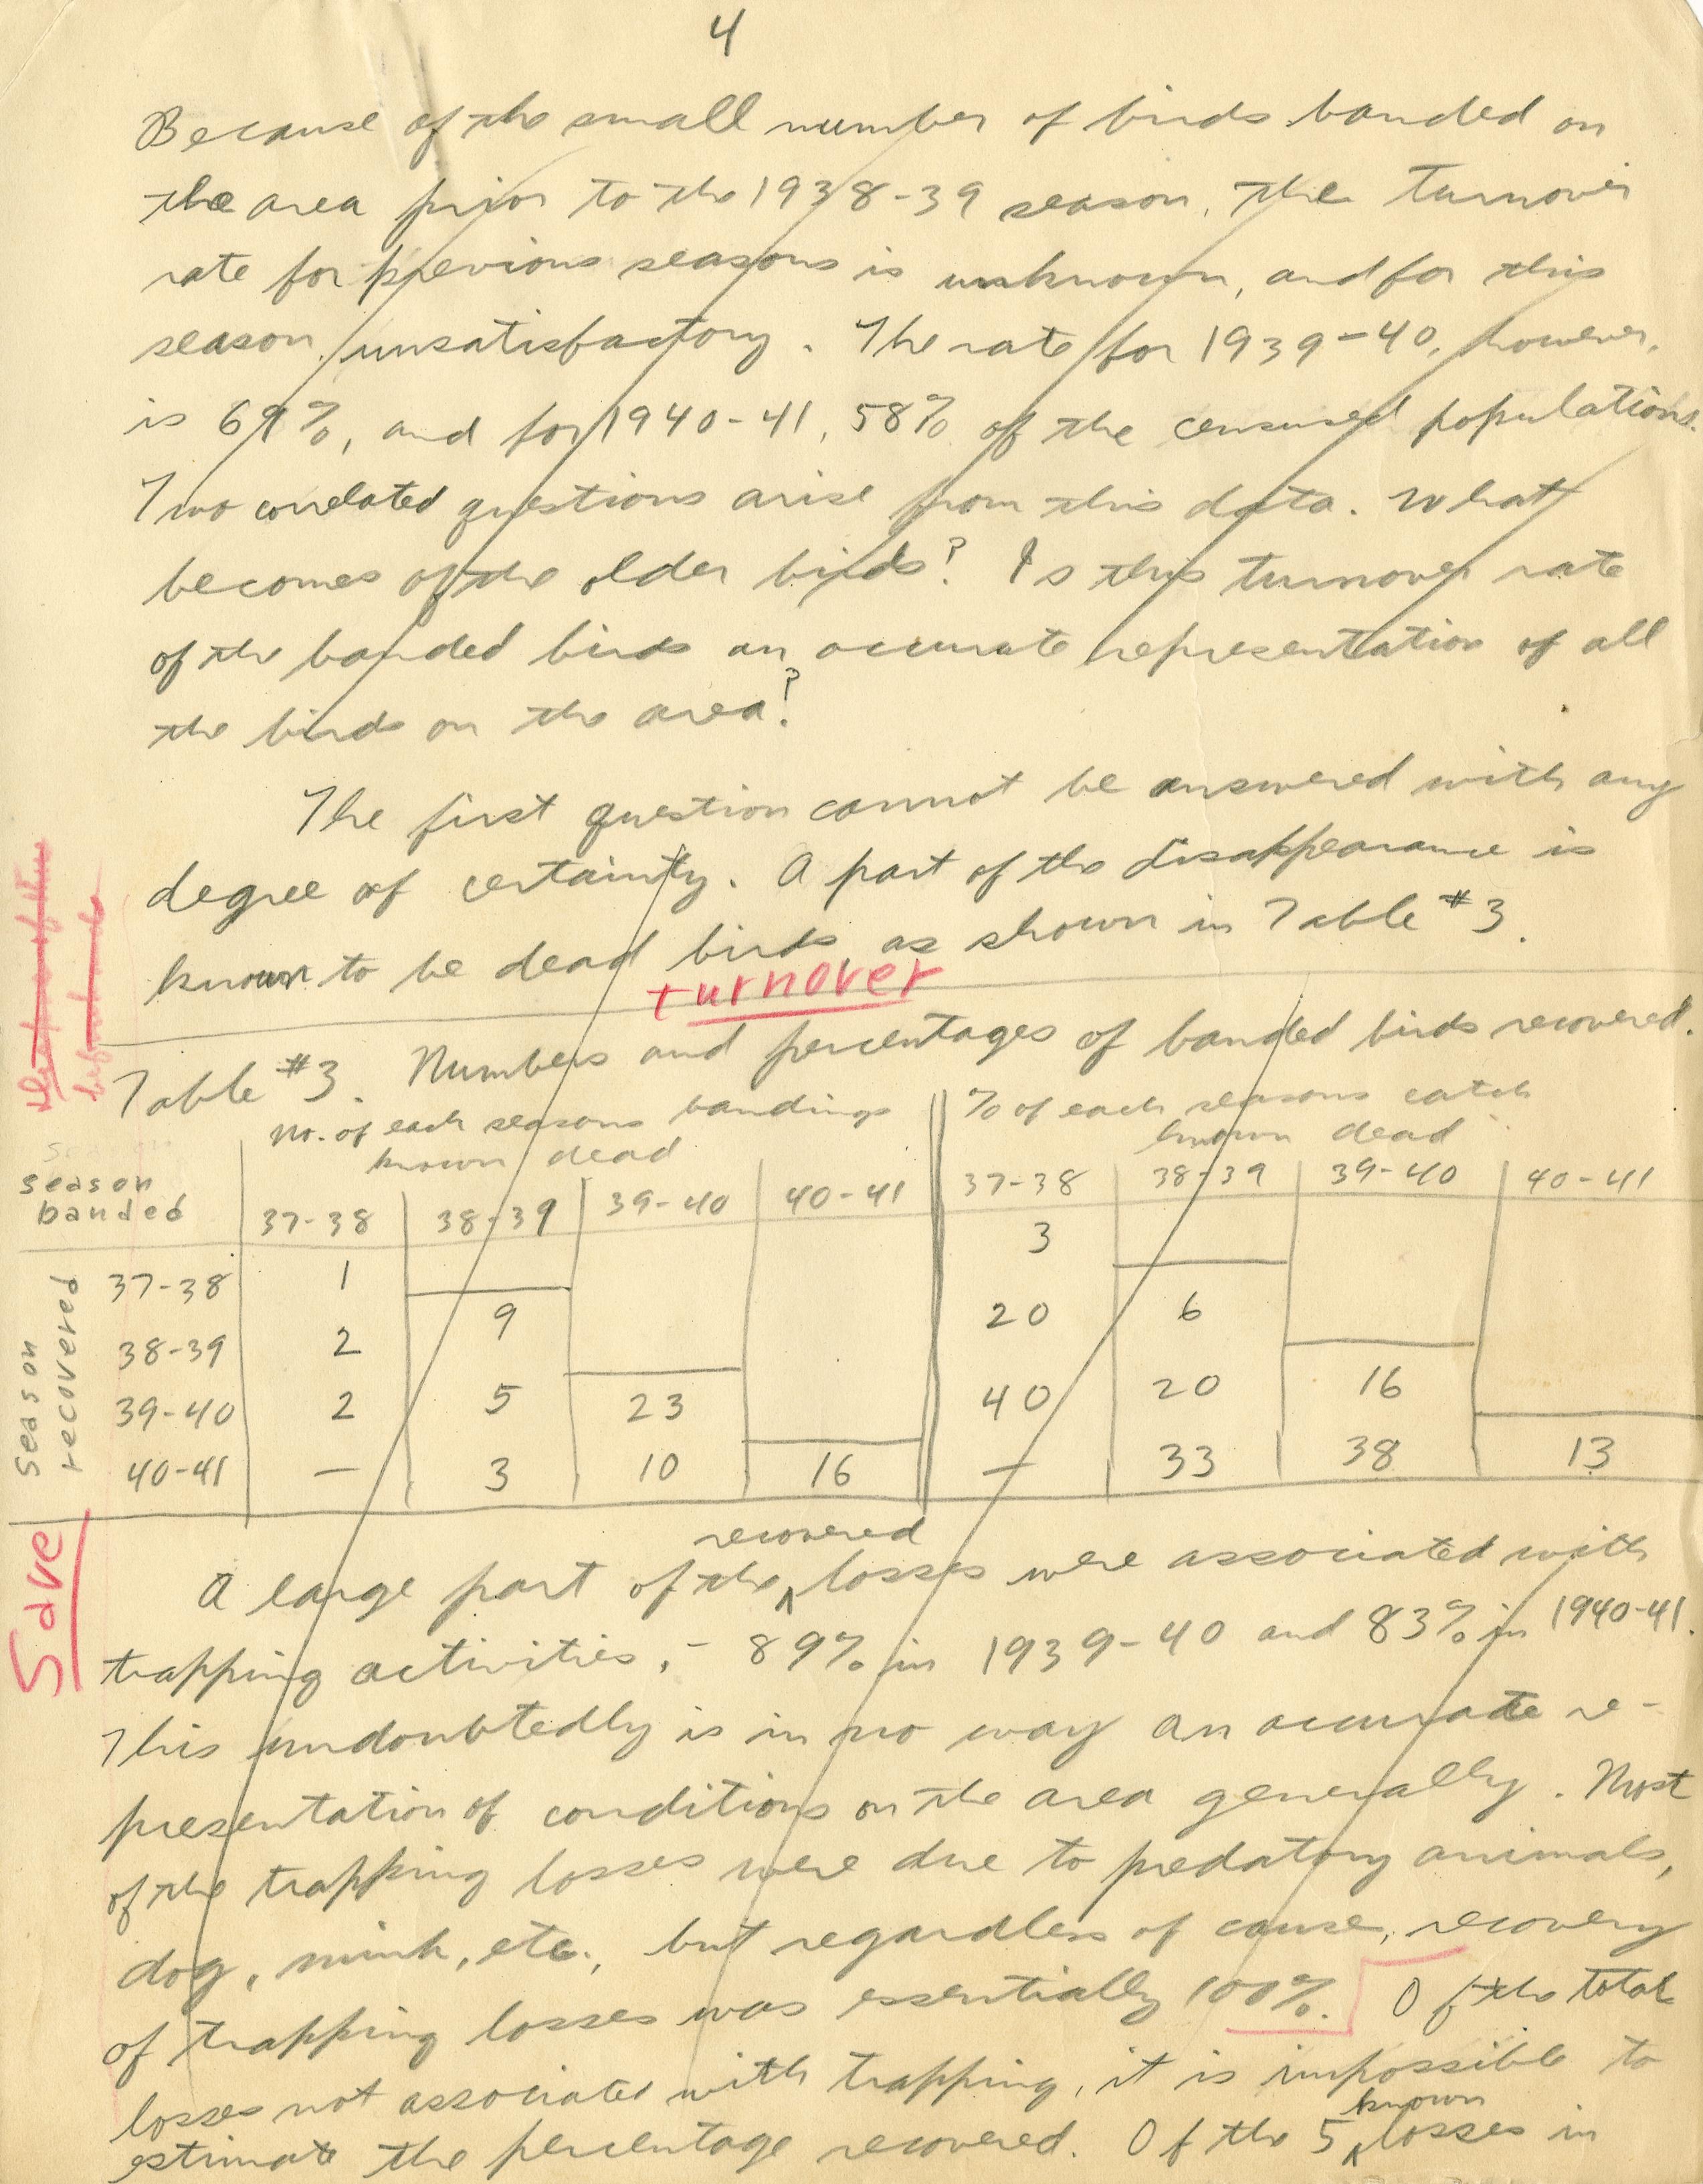 4
Because of the small number of birds banded on
the area prior to the 1938-39 season, the turnover
rate for previous seasons is unknown, and for this
season, unsatisfactory. The rate for 1939-40, however,
is 69%, and for 1940-41, 58% of the censused populations.
Two correlated questions arise from this data. What
becomes of the older birds? Is this turnover rate
of the banded birds an accurate representation of all
the birds on the area?
The first question cannot be answered with any
degree of certainty. A part of the disappearance is
known to be dead birds as shown in Table #3.
turnover
Table #3. Numbers and percentages of banded birds recovered.
No. of each seasons bandings known dead | % of each seasons catch known dead
season banded | 37-38 | 38-39 | 39-40 | 40-41 | 37-38 | 38-39 | 39-40 | 40-41
season recovered
37-38 | 1 | | | | 3
38-39 | 2 | 9 | | | 20 | 6
39-40 | 2 | 5 | 23 | | 40 | 20 | 16
40-41 | — | 3 | 10 | 16 | — | 33 | 38 | 13
Save
A large part of the recovered losses were associated with
trapping activities, - 89% in 1939-40 and 83% in 1940-41.
This undoubtedly is in no way an accurate re-
presentation of conditions on the area generally. Most
of the trapping losses were due to predatory animals,
dog, mink, etc., but regardless of cause, recovery
of trapping losses was essentially 100%. Of the total
losses not associated with trapping, it is impossible to
estimate the percentage recovered. Of the 5 known losses in